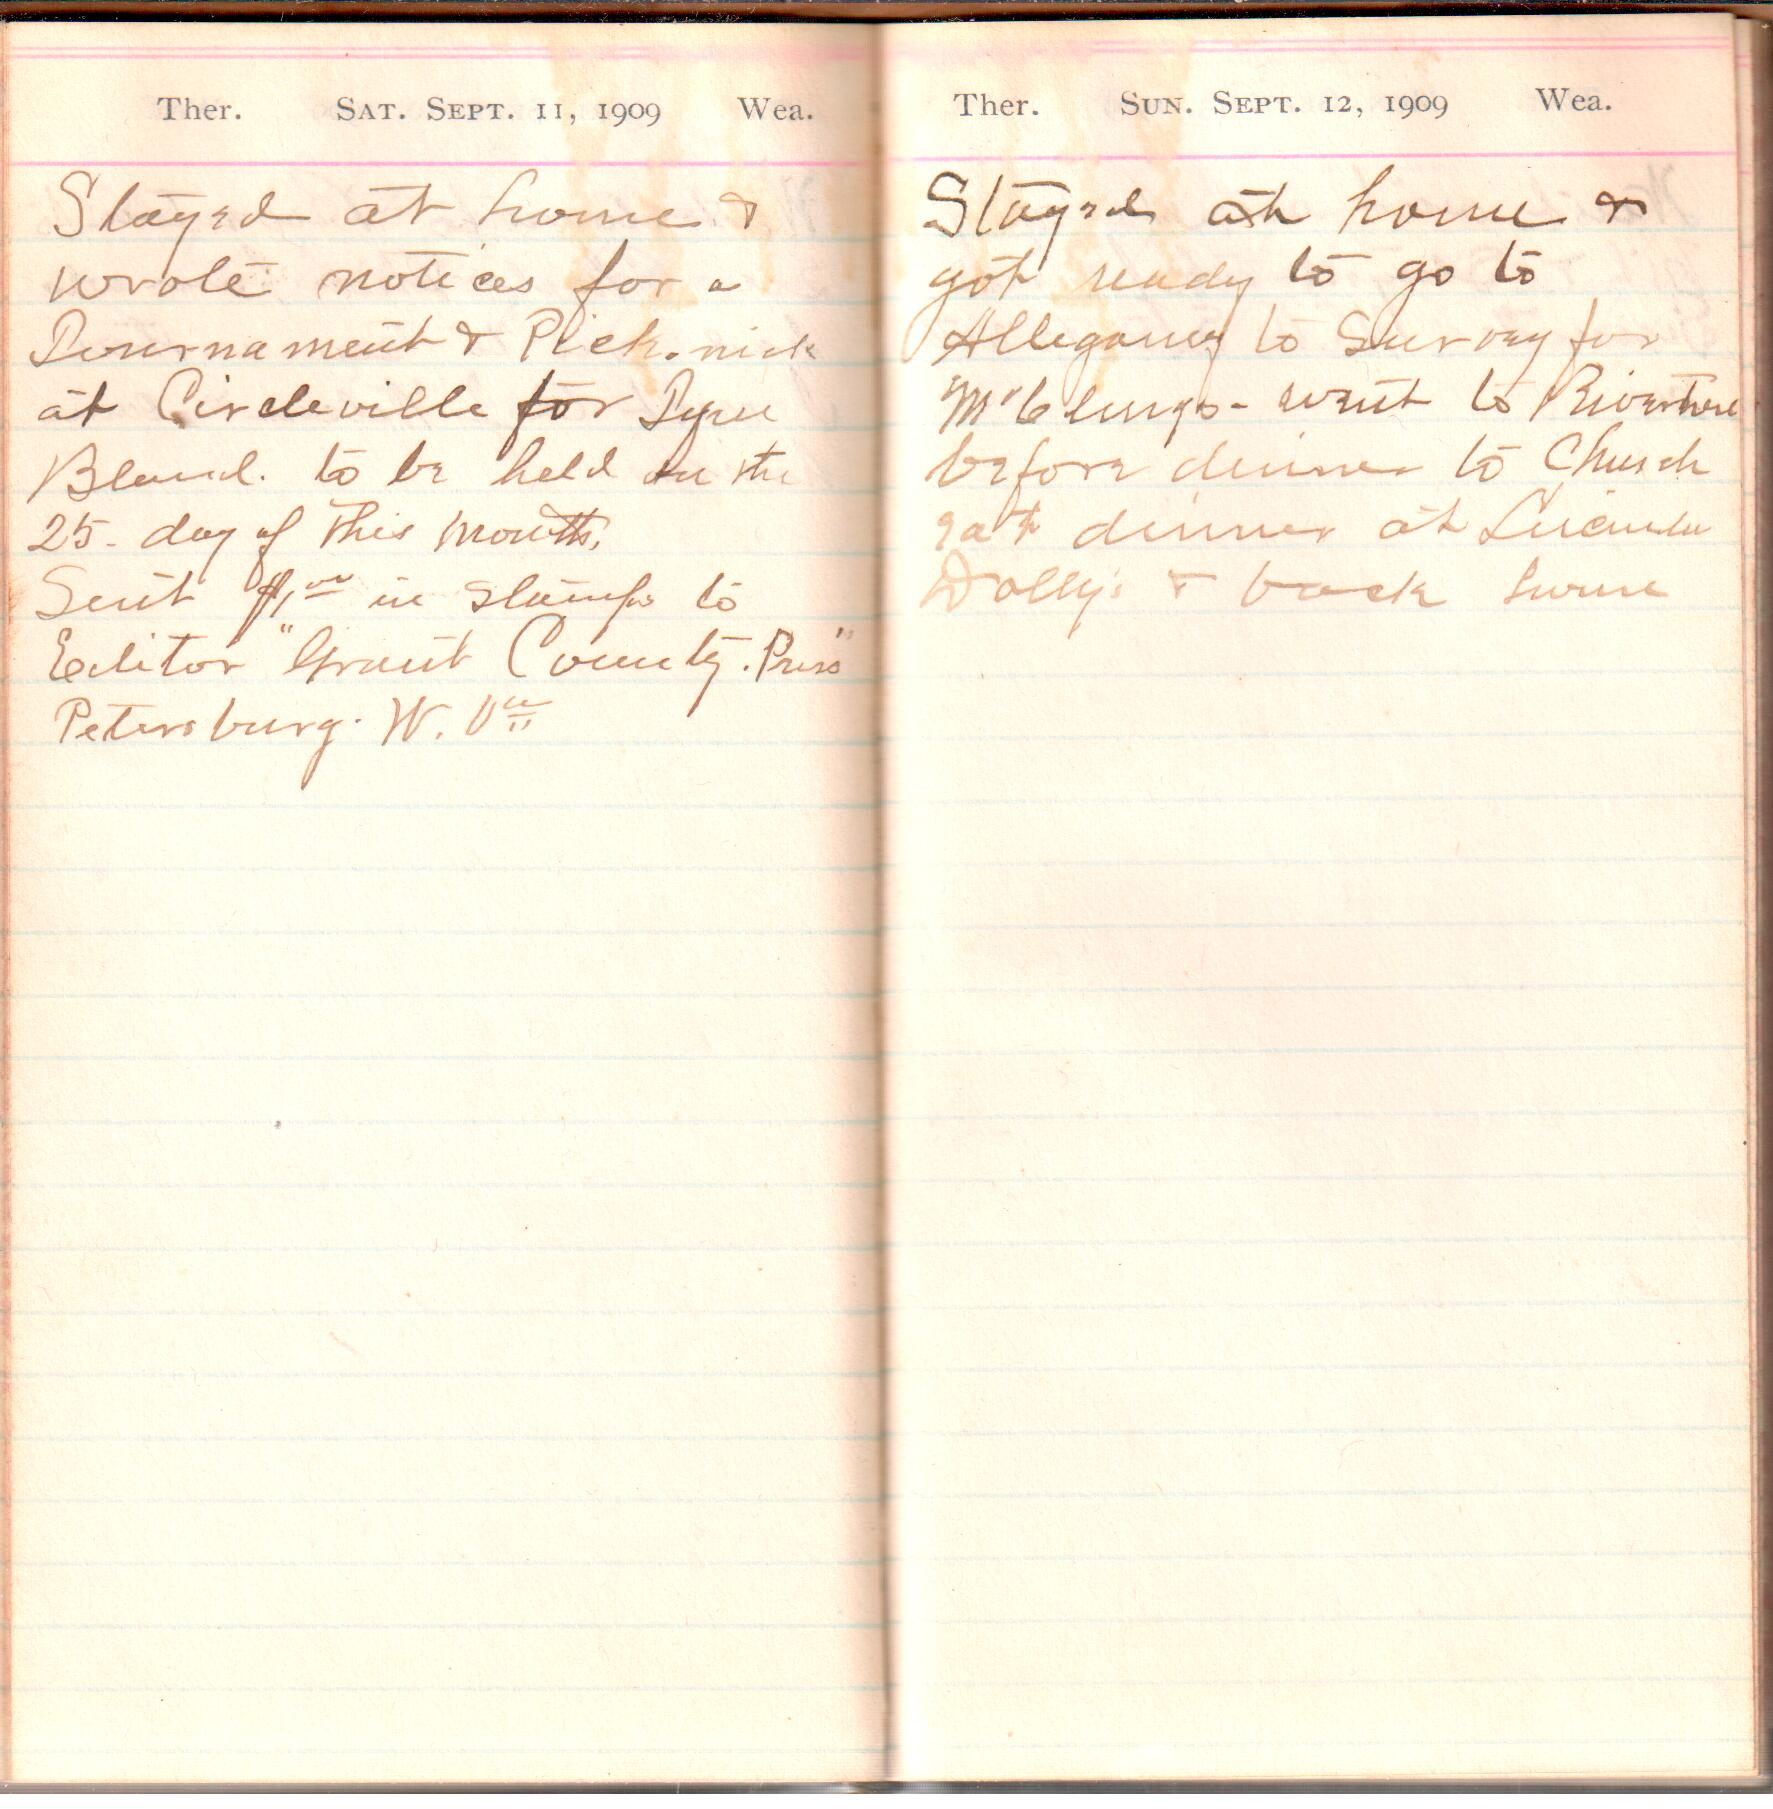 Ther. SAT. SEPT. 11, 1909 Wea.
Stayed at home &
wrote notices for a
Tournament & Pick.nick
at Circleville for Tyree
Bland. to be held on the
25. day of This Month,
Sent $1,00 in stamps to
Editor "Grant County. Press"
Petersburg. W. Va
Ther. SUN. SEPT. 12, 1909 Wea.
Stayed at home &
got ready to go to
Allegany to Survey for
McClungs - went to Riverton
before dinner to Church
eat dinner at Lucinda
Dolly's & back home